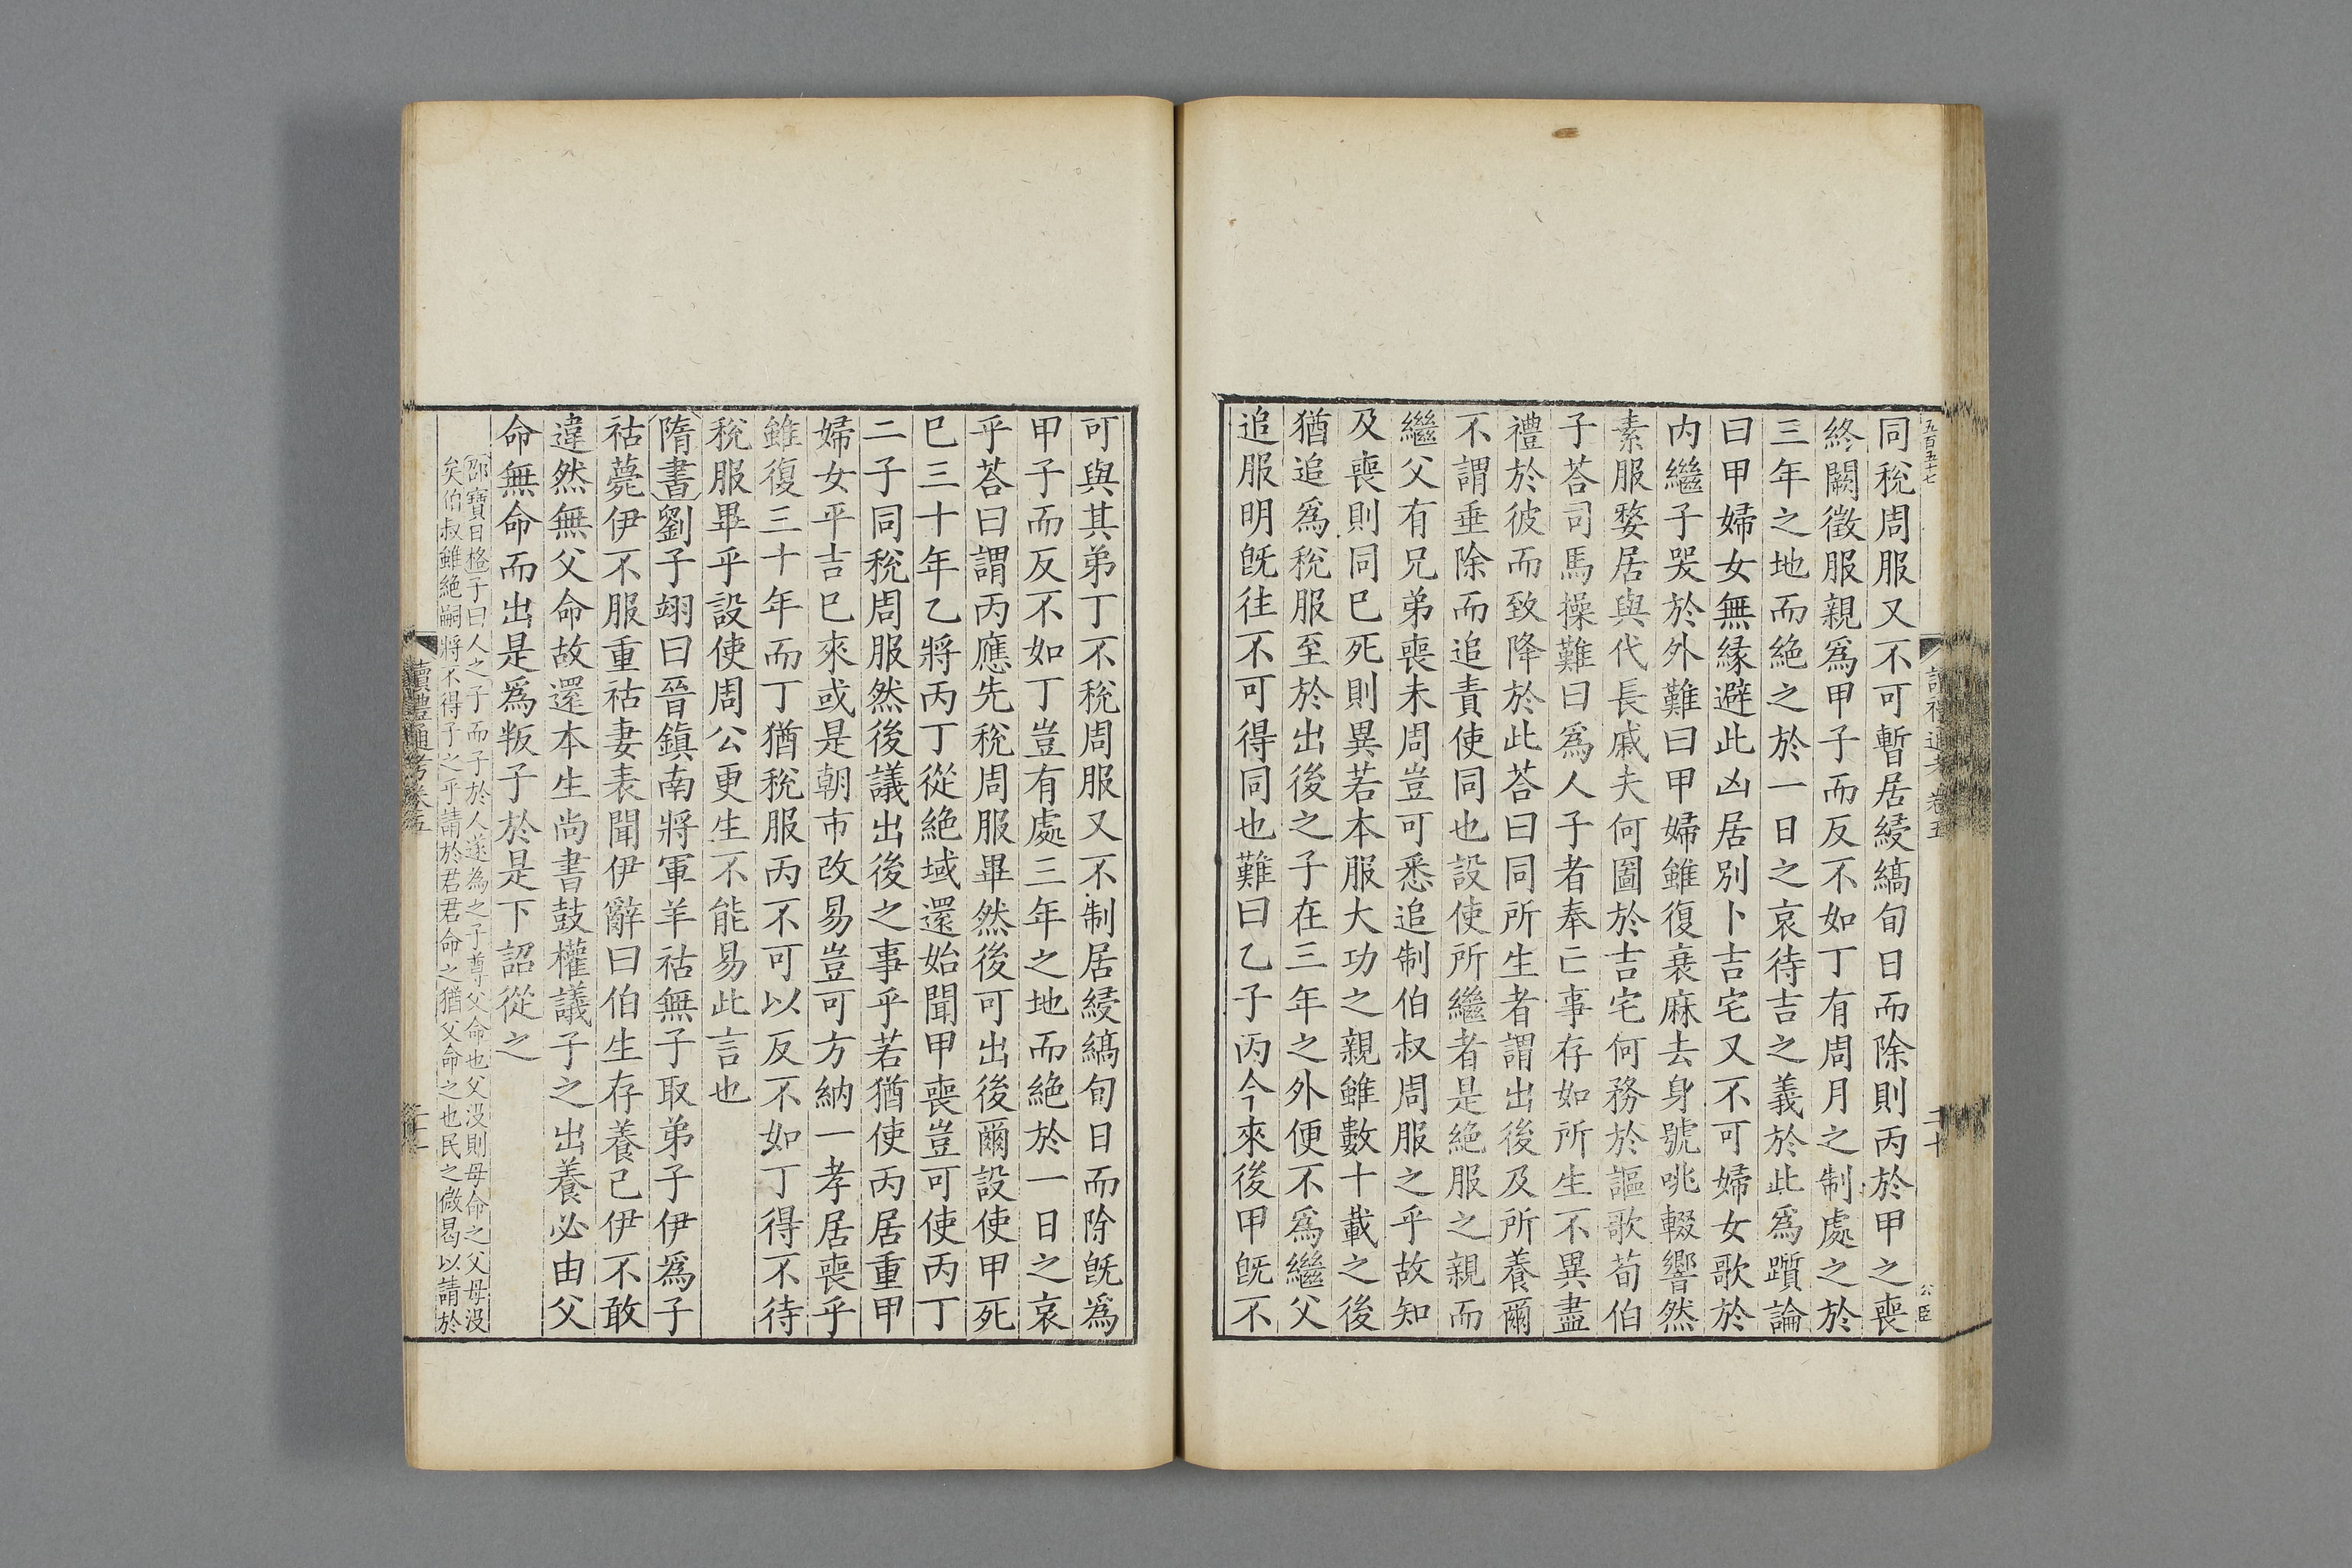 五百五十七
讀禮通考 卷五
二十
公臣
同稅周服又不可暫居縗縞旬日而除則丙於甲之喪
終闕徵服親爲甲子而反不如丁有周月之制處之於
三年之地而絕之於一日之哀待吉之義於此爲躓論
曰甲婦女無緣避此凶居別卜吉宅又不可婦女歌於
内繼子哭於外難曰甲婦雖復衰麻去身號咷輟響然
素服婺居與代長戚夫何圖於吉宅何務於謳歌荀伯
子荅司馬操難曰爲人子者奉亡事存如所生不異盡
禮於彼而致降於此荅曰同所生者謂出後及所養爾
不謂垂除而追責使同也設使所繼者是絶服之親而
繼父有兄弟喪未周豈可悉追制伯叔周服之乎故知
及喪則同已死則異若本服大功之親雖數十載之後
猶追爲稅服至於出後之子在三年之外便不爲繼父
追服明旣徃不可得同也難曰乙子丙今來後甲旣不
可與其弟丁不稅周服又不制居縗縞旬日而除旣爲
甲子而反不如丁豈有處三年之地而絶於一日之哀
乎荅曰謂丙應先稅周服畢然後可出後爾設使甲死
巳三十年乙將丙丁從絶域還始聞甲喪豈可使丙丁
二子同稅周服然後議出後之事乎若猶使丙居重甲
婦女平吉巳來或是朝市改易豈可方納一孝居喪乎
雖復三十年而丁猶稅服丙不可以反不如丁得不待
稅服畢乎設使周公更生不能易此言也
隋書劉子翊曰晉鎮南將軍羊祜無子取弟子伊爲子
祜薨伊不服重祜妻表聞伊辭曰伯生存養己伊不敢
違然無父命故還本生尚書鼓權議子之出養必由父
命無命而出是爲叛子於是下詔從之
邵寶曰格子曰人之子而子於人遂為之子尊父命也父没則母命之父母没
矣伯叔雖絶嗣將不得子之乎請於君君命之猶父命之也民之㣲曷以請於
讀禮通考卷五